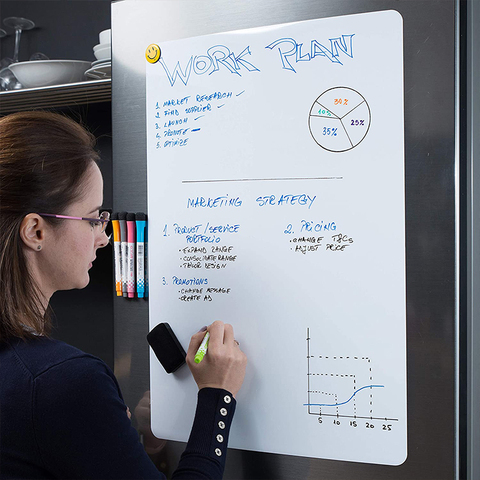 WORK PLAN
1. MARKET RESEARCH ✓
2. FIND SUPPLIER ✓
3. LAUNCH ✓
4. PROMOTE
5. OPTIMIZE
30%
10%
25%
35%
MARKETING STRATEGY
1. PRODUCT/SERVICE
PORTFOLIO
• EXPAND RANGE
• CONSOLIDATE RANGE
• TAILOR DESIGN
2. PRICING
• CHANGE T&Cs
• ADJUST PRICE
3. PROMOTIONS
• CHANGE MESSAGE
• CREATE AD
5 10 15 20 25